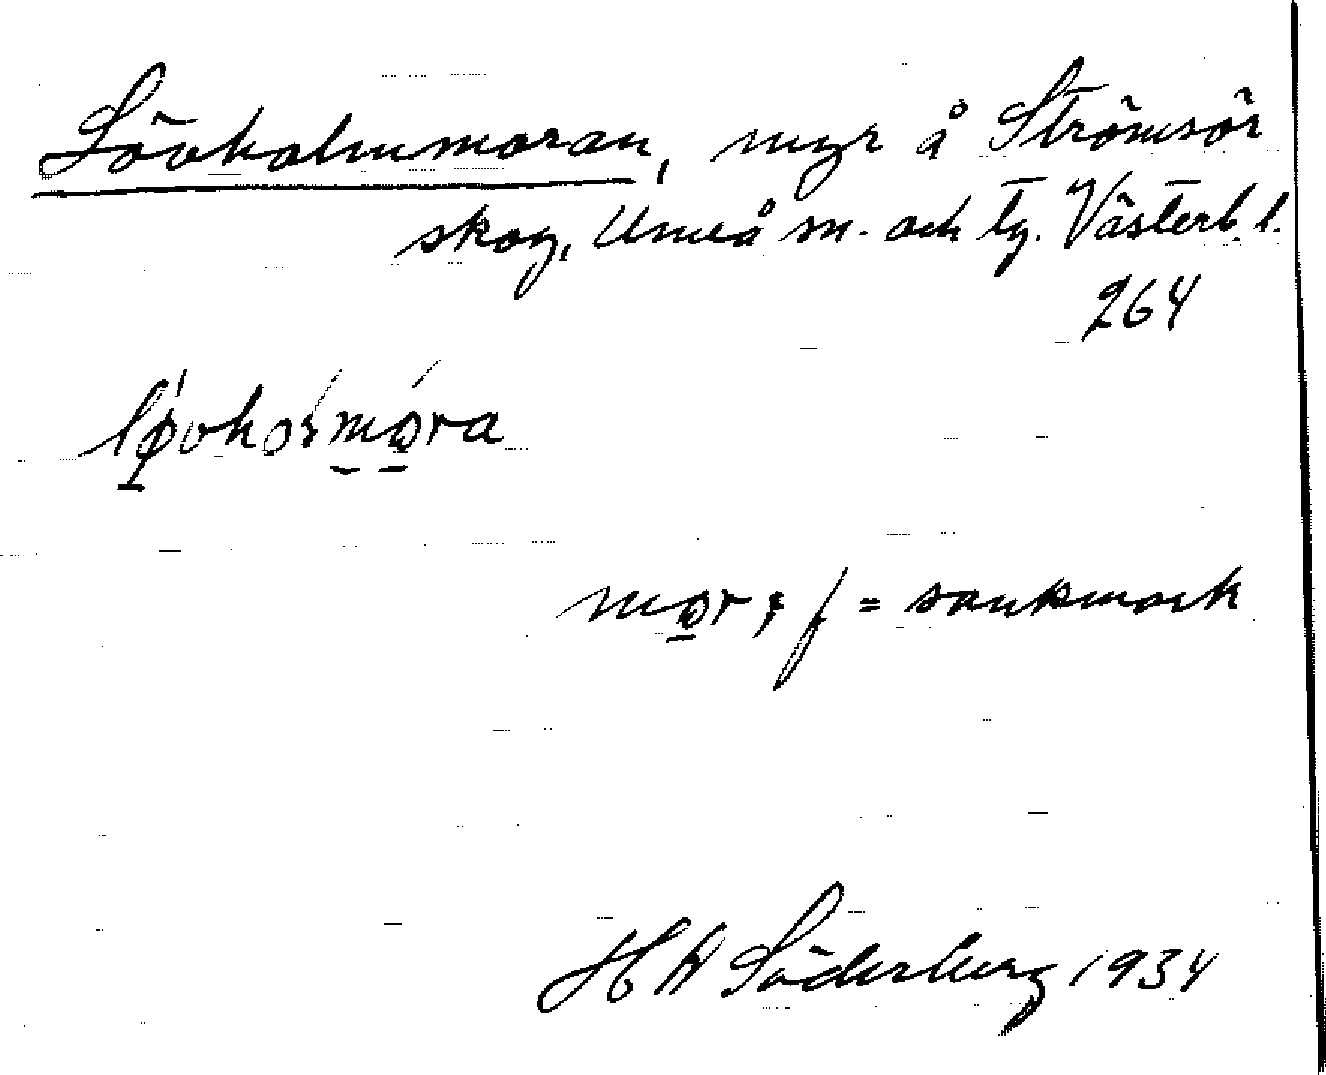 Lövholmmoran, myr å Strömsör
skog, Umeå sn. och tg. Västerb. l.
264
mo̱r, f = sankmark
H A Söderberg 1934